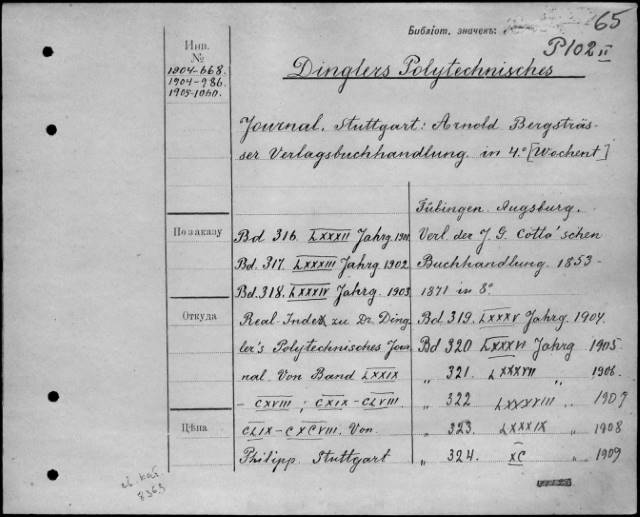 65
Библіот. значекъ:
P102 II
Инв.
№
1904-668.
1904-986.
1905-1060.
Dinglers Polytechnisches
Journal. Stuttgart: Arnold Bergsträs-
ser Verlagsbuchhandlung. in 4.° [Wochent]
По заказу
Bd 316. LXXXII Jahrg. 1901.
Bd. 317. LXXXIII Jahrg. 1902.
Bd. 318. LXXXIV Jahrg. 1903
Откуда
Real-Index zu Dr. Ding
ler's Polytechnisches Jour
nal. Von Band LXXIX
- CXVIII; CXIX-CLVIII.
Цѣна
CLIX-CXCVIII. Von
Philipp. Stuttgart
Tübingen. Augsburg.
Verl. der J. G. Cotta'schen
Buchhandlung. 1853-
1871 in 8°
Bd. 319. LXXXV Jahrg. 1904.
Bd 320 LXXXVI Jahrg 1905.
„ 321. LXXXVII „ 1906.
„ 322 LXXXVIII „ 1907
„ 323. LXXXIX „ 1908
„ 324. XC „ 1909
8363